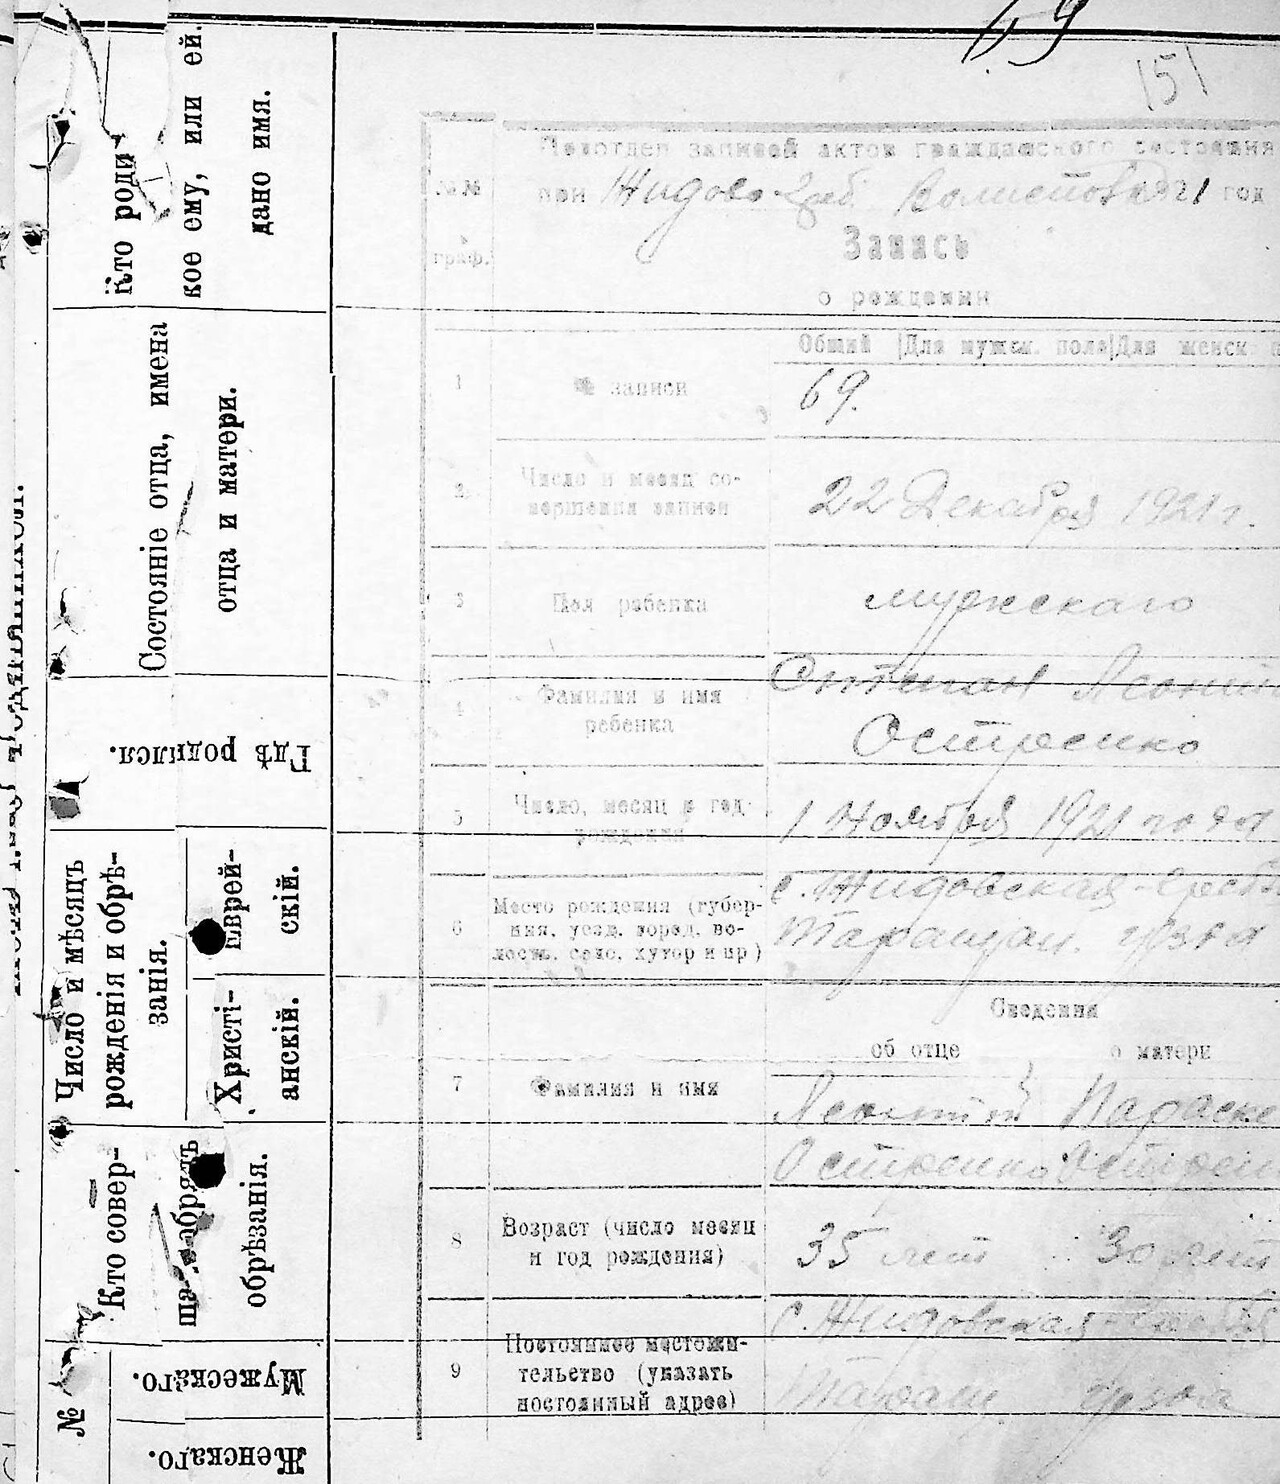 69
151
Кто роди
кое ему, или ей.
дано имя.
Состояніе отца, имена
отца и матери.
Гдѣ родился.
Число и мѣсяцъ
рожденія и обрѣ-
занія.
Еврей-
скій.
Христі-
анскій.
Кто совер-
обрядъ
обрѣзанія.
№
Мужескаго.
Женскаго.
записей актов гражданского состояния
№№ при Жидово-Греб. 21 год
граф. Запись
о рождении
Общий Для мужск. пола Для женск п
1 № записи 69.
2 Число и месяц со-
вершения записи
22 Декабря 1921 г.
3 Пол ребенка мужскаго
4 Фамилия и имя
ребенка
Степан Леонтий
Остренко
5 Число, месяц и год
рождения
1 Ноября 1921 года
6 Место рождения (губер-
ния, уезд, город, во-
лость, село, хутор и пр)
с. Жидовская-Гребля
Таращан. уезда
Сведения
об отце о матери
7 Фамилия и имя
Леонтий Параске
Остренко Острен
8 Возраст (число месяц
и год рождения)
35 лет 30 лет
9 Постоянное местожи-
тельство (указать
постоянный адрес)
с. Жидовская-Гребля
Таращ. уезда